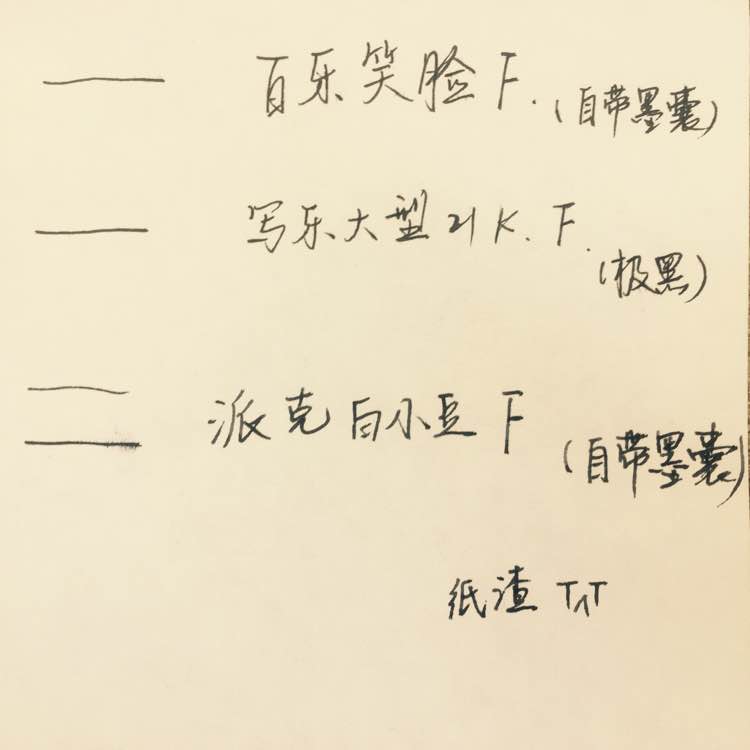 百乐笑脸 F.(自带墨囊)
写乐大型 21K. F.
(极黑)
派克白小豆 F
(自带墨囊)
纸渣 T^T